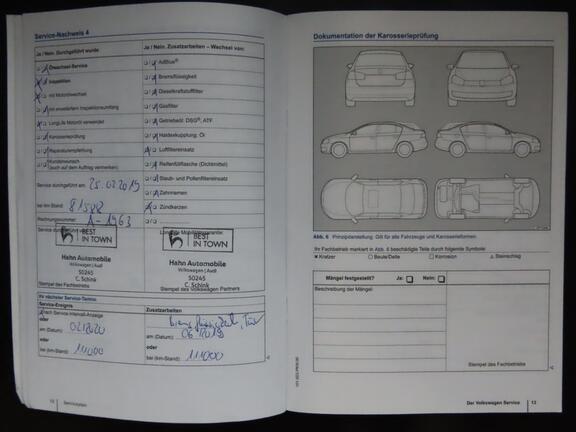 Service-Nachweis 4
Ja / Nein. Durchgeführt wurde:
Ölwechsel-Service
Inspektion
mit Motorölwechsel
mit erweitertem Inspektionsumfang
LongLife Motoröl verwendet
Karosserieprüfung
Reparaturempfehlung
Kundenwunsch
(auch auf dem Auftrag vermerken)
Service durchgeführt am: 25.02.2019
bei km-Stand: 81588
Rechnungsnummer: A-1963
Service durchgeführt
BEST
IN TOWN
Hahn Automobile
Volkswagen | Audi
50245
C. Schink
Ja / Nein. Zusatzarbeiten – Wechsel von:
AdBlue®
Bremsflüssigkeit
Dieselkraftstofffilter
Gasfilter
Getriebeöl: DSG®, ATF
Haldexkupplung: Öl
Luftfiltereinsatz
Reifenfüllflasche (Dichtmittel)
Staub- und Pollenfiltereinsatz
Zahnriemen
Zündkerzen
LongLife Mobilitätsgarantie:
BEST
IN TOWN
Hahn Automobile
Volkswagen | Audi
50245
C. Schink
Stempel des Volkswagen Partners
Ihr nächster Service-Termin:
Service-Ereignis
nach Service-Intervall-Anzeige
oder
am (Datum): 02/2020
oder
bei (km-Stand): 111000
Zusatzarbeiten
am (Datum): 06/2019
oder
bei (km-Stand): 111000
12 Serviceplan
Dokumentation der Karosserieprüfung
Abb. 6 Prinzipdarstellung: Gilt für alle Fahrzeuge und Karosserieformen.
Ihr Fachbetrieb markiert in Abb. 6 beschädigte Teile durch folgende Symbole:
× Kratzer ○ Beule/Delle □ Korrosion △ Steinschlag
Mängel festgestellt? Ja: Nein:
Beschreibung der Mängel:
Stempel des Fachbetriebs
Der Volkswagen Service 13